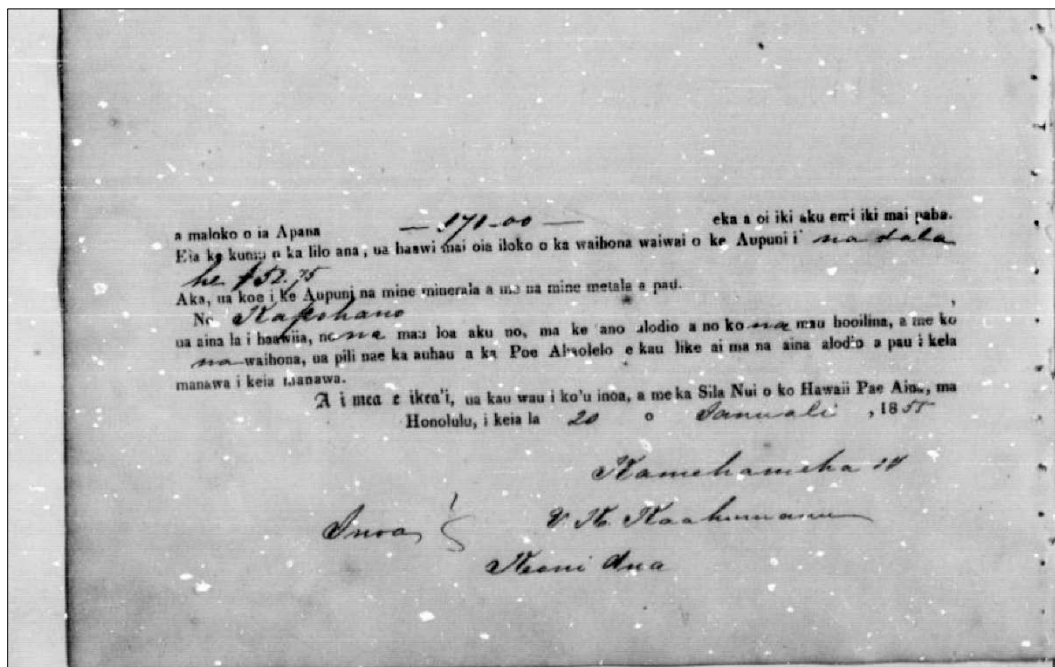 a maloko o ia Apana — 171.00 — eka a oi iki aku emi iki mai paha.
Eia ke kumu o ka lilo ana, ua haawi mai oia iloko o ka waihona waiwai o ke Aupuni i na dala
he 152.75
Aka, ua koe i ke Aupuni na mine minerala a me na mine metala a pau.
No Kapohano
ua aina la i haawiia, no na mau loa aku no, ma ke ano alodio a no ko na mau hooilina, a me ko
na waihona, ua pili nae ka auhau a ka Poe Ahaolelo e kau like ai ma na aina alodio a pau i kela
manawa i keia manawa.
A i mea e ikea'i, ua kau wau i ko'u inoa, a me ka Sila Nui o ko Hawaii Pae Aina, ma
Honolulu, i keia la 20 o Ianuali, 1855
Kamehameha IV
Inoa V. K. Kaahumanu
Keoni Ana